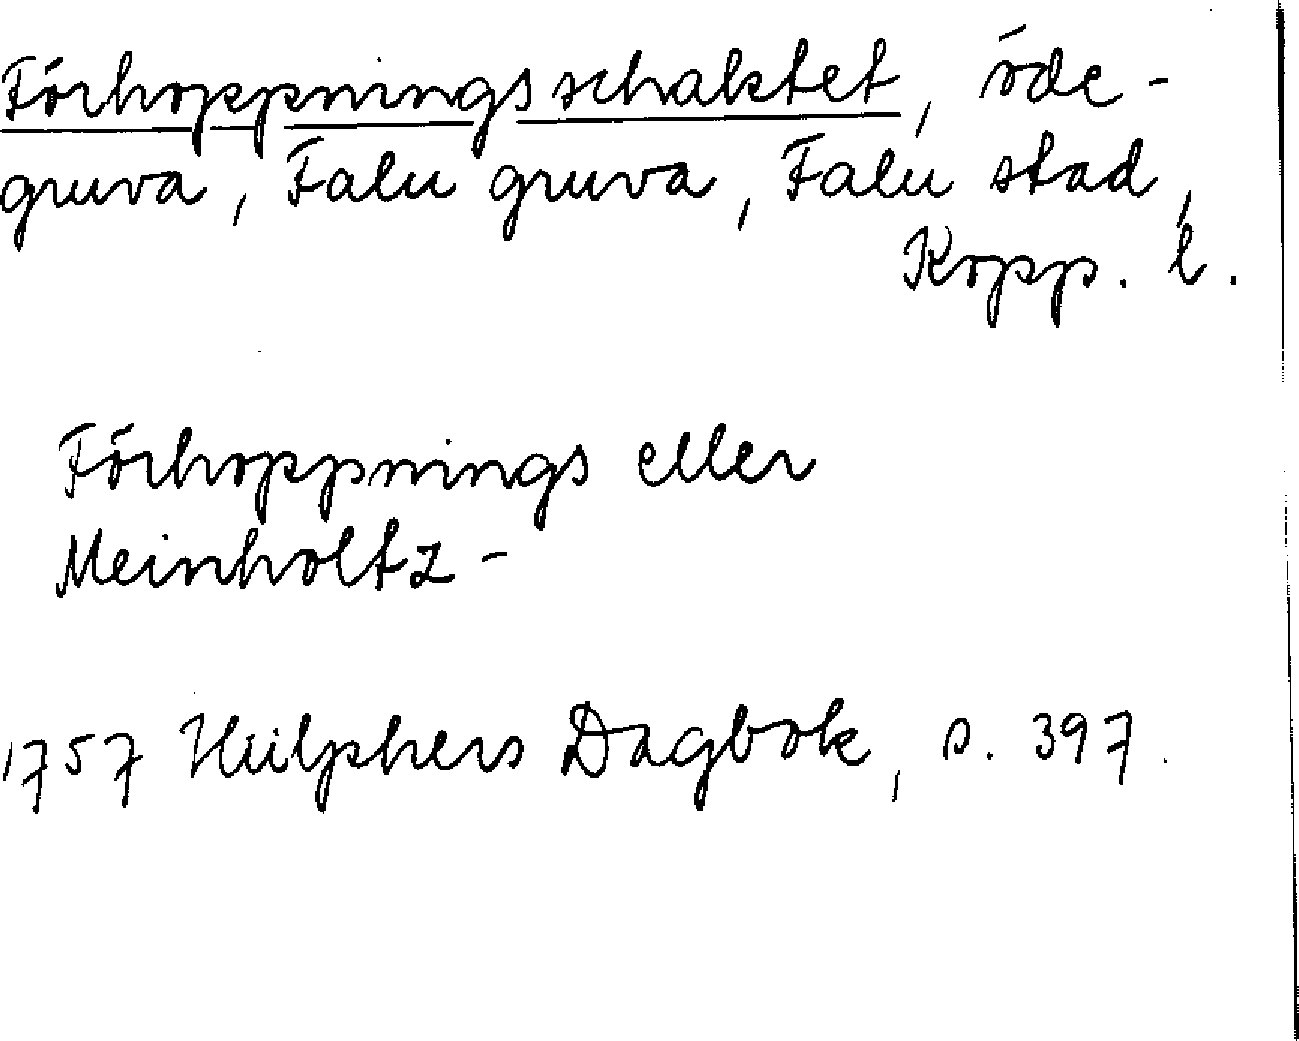 Förhoppningsschaktet, öde-
gruva, Falu gruva, Falu stad,
Kopp. l.
Förhoppnings eller
Meinholtz-
1757 Hülphers Dagbok, s. 397.